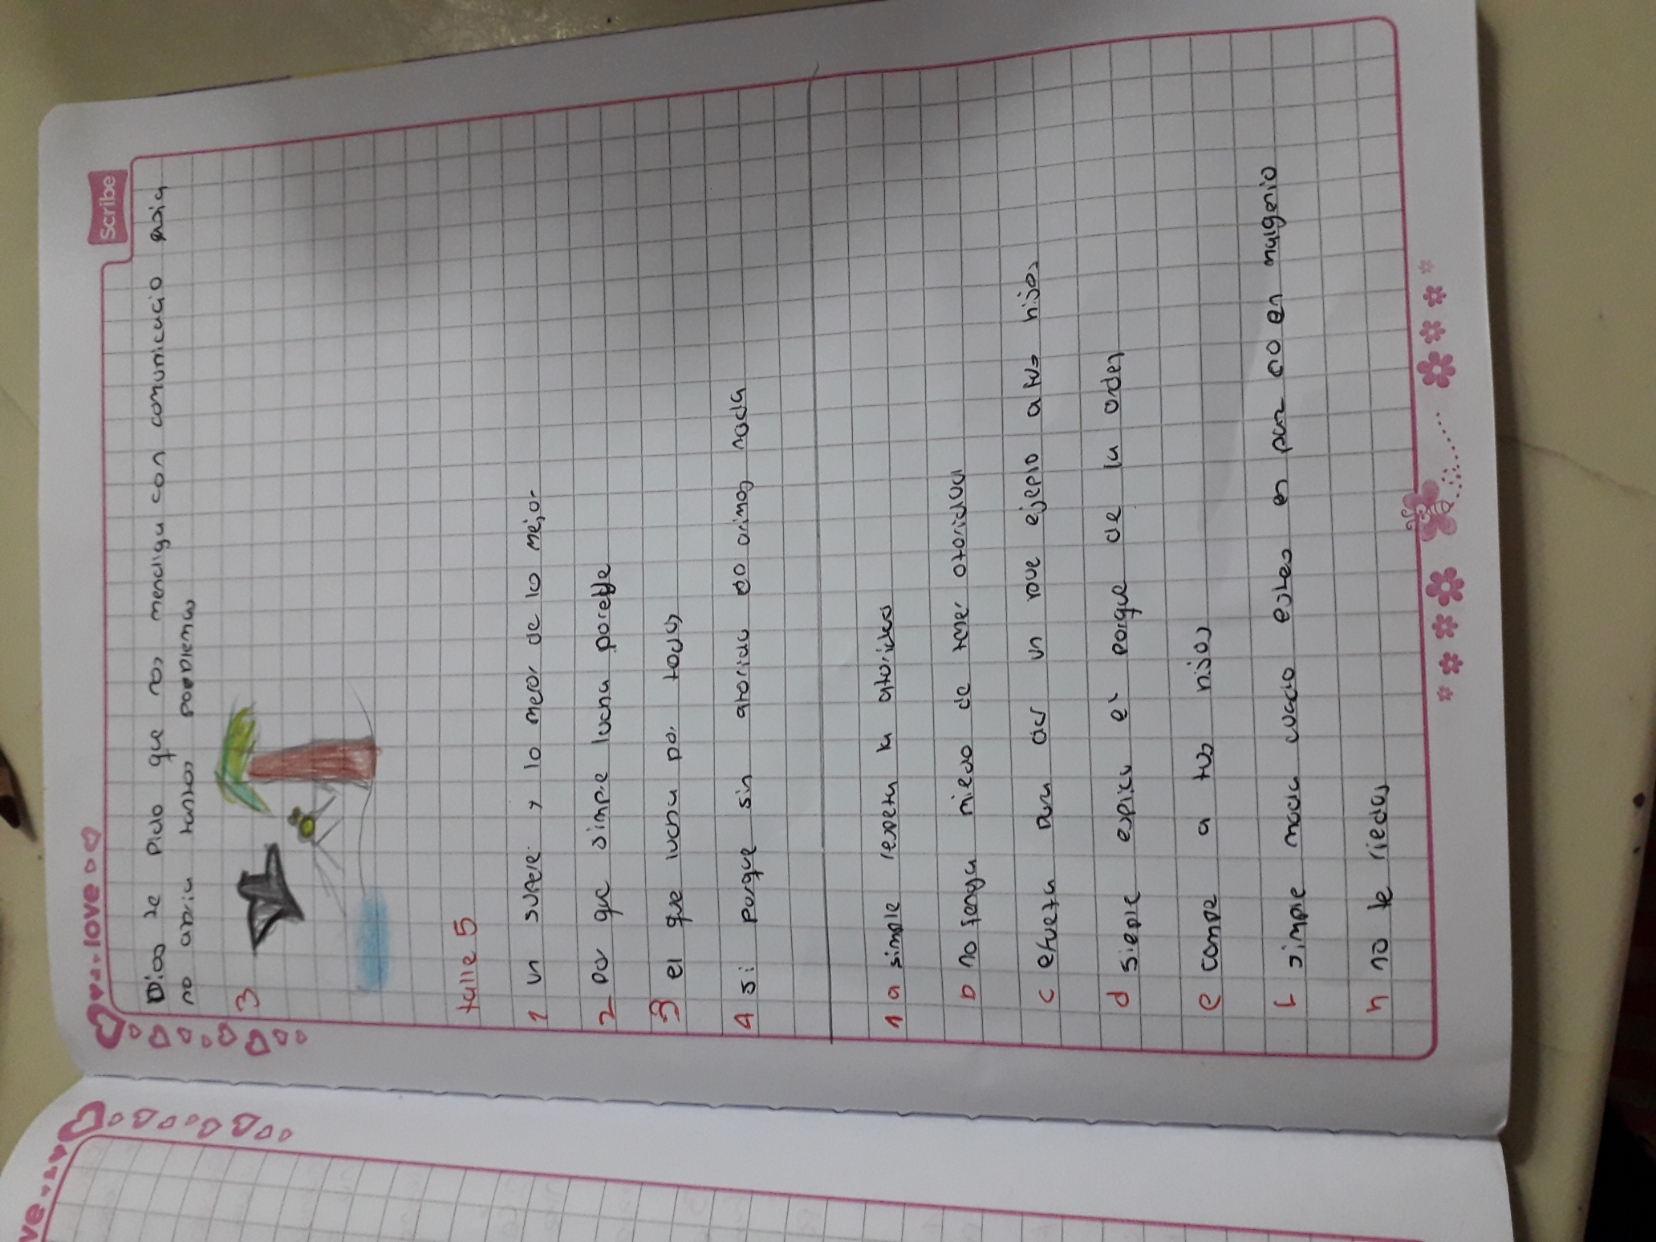 Scribe
love
Dios te pido que nos mendigu con comunicucio paia
no abriu tantos problemas
3
talle 5
1 un superei y lo meror de lo mejor
2 por que simpre lucha porette
3 el que luchu por todos
4 si porque sin atoridu no arimos nada
1 a simple respeta la atoridad
b no tenga miedo de tener otoridad
c efuerta para dar un vove ejeplo a tus hijos
d siepre espicu el porque de la orden
e compe a tus hijos
f simple manda cuado estes en paz no en malgenio
h no te riedas
ve